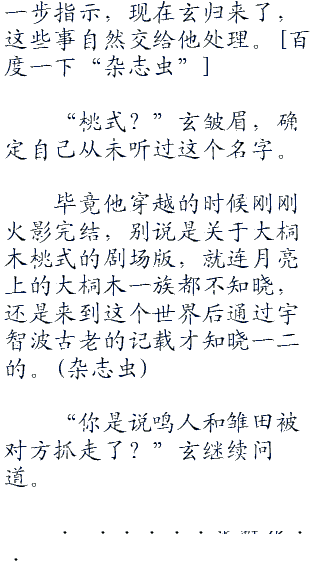 一步指示，现在玄归来了，
这些事自然交给他处理。[百
度一下“杂志虫”]
“桃式？”玄皱眉，确
定自己从未听过这个名字。
毕竟他穿越的时候刚刚
火影完结，别说是关于大桐
木桃式的剧场版，就连月亮
上的大桐木一族都不知晓，
还是来到这个世界后通过宇
智波古老的记载才知晓一二
的。(杂志虫)
“你是说鸣人和雏田被
对方抓走了？”玄继续问
道。